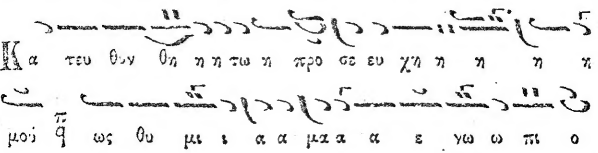 Κα τευ θυν θη η η τω η προ σε ευ χη η η η η
μού π̇ q ως θυ μι ι α α μα α α ε νω ω πι ο